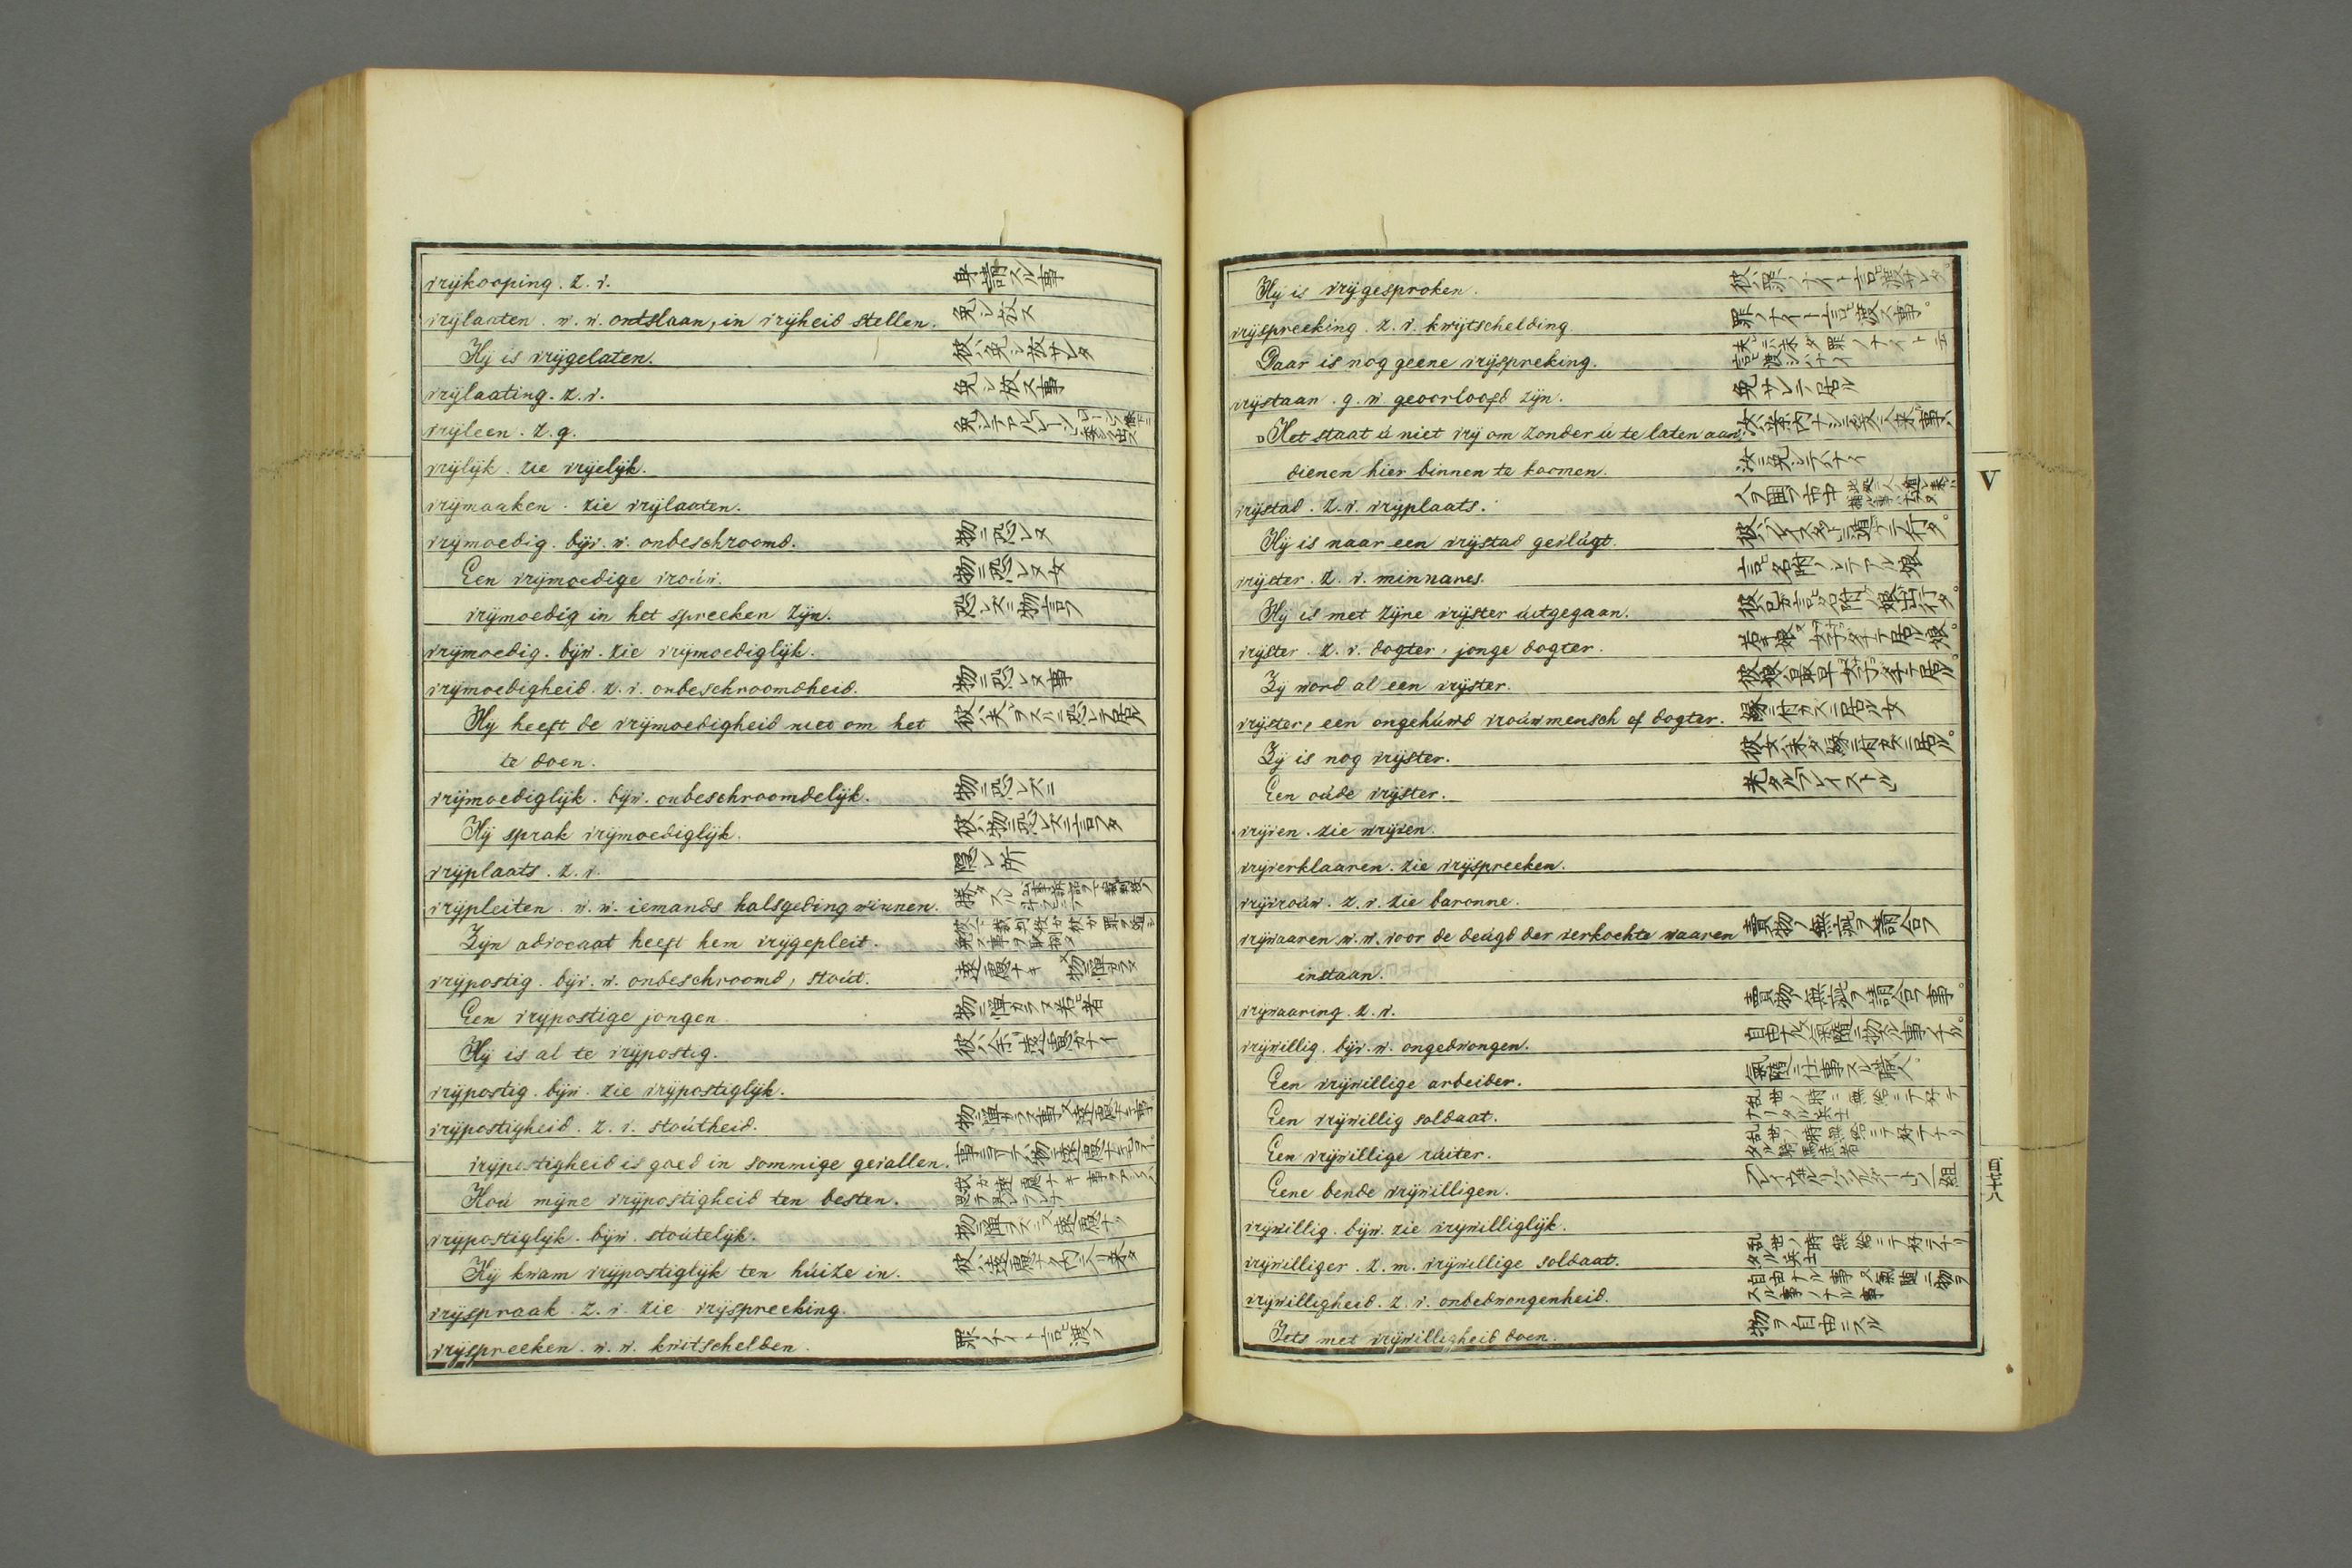 vrijkooping. z. v. 身請スル事
vrijlaaten. w. w. ontslaan, in vrijheid stellen. 免シ放ス
Hij is vrijgelaten. 彼ハ免シ放サレタ
vrijlaating. z. v. 免シ放ス事
vrijleen. z. g.
vrijlijk. zie vrijelijk.
vrijmaaken. zie vrijlaaten.
vrijmoedig. bijv. w. onbeschroomd. 物ニ恐レヌ
Een vrijmoedige vroúw. 物ニ恐レヌ女
vrijmoedig in het spreeken zijn. 恐レズニ物言フ
vrijmoedig. bijw. zie vrijmoediglijk.
vrijmoedigheid. z. v. onbeschroomdheid. 物ニ恐レヌ事
Hij heeft de vrijmoedigheid niet om het 彼ハ夫ヲスルニ恐レテ居ル
te doen.
vrijmoediglijk. bijw. onbeschroomdelijk. 物ニ恐レズニ
Hij sprak vrijmoediglijk. 彼ハ物ニ恐レズニ言フタ
vrijplaats. z. v. 隠レ所
vrijpleiten. w. w. iemands halsgeding winnen.
Zijn advocaat heeft hem vrijgepleit.
vrijpostig. bijv. w. onbeschroomd, stoút. 遠慮ナキ 又物ニ憚カラヌ
Een vrijpostige jongen 物ニ憚カラヌ若者
Hij is al te vrijpostig. 彼ハ余リ遠慮ガナイ
vrijpostig. bijw. zie vrijpostiglijk.
vrijpostigheid. z. v. stoútheid. 物ニ憚カラヌ事又遠慮ナキ事
vrijpostigheid is goed in sommige gevallen.
Hoú mijne vrijpostigheid ten besten.
vrijpostiglijk. bijw. stoútelijk.
Hij kwam vrijpostiglijk ten húize in. 彼ハ遠慮ナク内ニ入リ来タ
vrijspraak. z. v. zie vrijspreeking.
vrijspreeken. w. w. kwitschelden. 罪ノナイト言ヒ渡ス
Hij is vrijgesproken. 彼ハ罪ノナイト言ヒ渡サレタ。
vrijspreeking. z. v. kwijtschelding. 罪ノナイト言ヒ渡ス事。
Daar is nog geene vrijspreking.
vrijstaan. g. w. geoorloofd zijn. 免サレテ居ル
Het staat ú niet vrij om zonder ú te laten aan
dienen hier binnen te koomen. 汝ニ免シテハナイ
vrijstad. z. v. vrijplaats.
Hij is naar een vrijstad gevlúgt.
vrijster. z. v. minnares. 言ヒ名附ノシテアル娘
Hij is met zijne vrijster úitgegaan.
vrijster. z. v. dogter, jonge dogter.
Zij word al een vrijster.
vrijster, een ongehúwd vroúwmensch of dogter. 縁ニ付カズニ居ル女
Zij is nog vrijster. 彼女ハ未タ縁ニ付カズニ居ル。
Een oúde vrijster. 老タルフレイストル
vrijven. zie wrijven.
vrijverklaaren. zie vrijspreeken.
vrijvroúw. z. v. zie baronne.
vrijwaaren. w. w. voor de deúgd der verkochte waaren 賣物ノ無疵ヲ請合フ
instaan.
vrijwaaring. z. v. 賣物ノ無疵ヲ請合フ事。
vrijwillig. bijv. w. ongedwongen.
Een vrijwillige arbeider. 氣隨ニ仕事スル職人。
Een vrijwillig soldaat. 乱世ノ時ニ無給ニテ好テ
ナリタル兵士
Een vrijwillige rúiter. 乱世ノ時無給ニテ好テナリ
タル騎馬武者
Eene bende vrijwilligen.
vrijwillig. bijw. zie vrijwilliglijk.
vrijwilliger. z. m. vrijwillige soldaat. 乱世ノ時無給ニテ好テナリ
タル兵士
vrijwilligheid. z. v. onbedwongenheid. 自由ナル事又氣隨ニ物ヲ
スル事ノナル事
Iets met vrijwilligheid doen. 物ヲ自由ニスル
V
百七十八